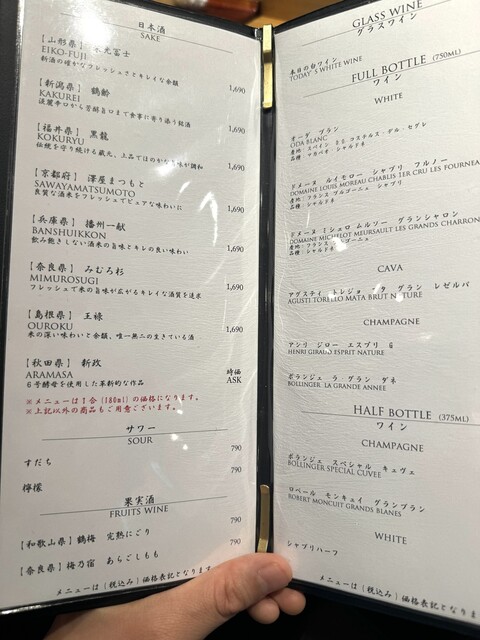 日本酒
SAKE
【山形県】 栄光冨士
EIKO-FUJI
新酒の確かなフレッシュさとキレイな余韻
1,690
【新潟県】 鶴齢
KAKUREI
淡麗辛口から芳醇旨口まで食事に寄り添う銘酒
1,690
【福井県】 黒龍
KOKURYU
伝統を守り続ける蔵元、上品でほのかな旨味が調和
1,690
【京都府】 澤屋まつもと
SAWAYAMATSUMOTO
良質な酒米をフレッシュでピュアな味わいに
1,690
【兵庫県】 播州一献
BANSHUIKKON
飲み飽きしない酒米の旨味とキレの良い味わい
1,690
【奈良県】 みむろ杉
MIMUROSUGI
フレッシュで米の旨味が広がるキレイな酒質を追求
1,690
【島根県】 王祿
OUROKU
米の深い味わいと余韻、唯一無二の生きている酒
1,690
【秋田県】 新政
ARAMASA
6号酵母を使用した革新的な作品
時価
ASK
※メニューは1合(180ml)の価格になります。
※上記以外の商品もご用意ございます。
サワー
SOUR
すだち
790
檸檬
790
果実酒
FRUITS WINE
【和歌山県】鶴梅 完熟にごり
790
【奈良県】梅乃宿 あらごしもも
790
メニューは(税込み)価格表記となります
GLASS WINE
グラスワイン
本日の白ワイン
TODAY'S WHITE WINE
FULL BOTTLE (750ML)
ワイン
WHITE
オーダ ブラン
ODA BLANC
産地:スペイン D.O.コステルス・デル・セグレ
品種:マカベオ・シャルドネ
ドメーヌ ルイモロー シャブリ フルノー
DOMAINE LOUIS MOREAU CHABLIS 1ER CRU LES FOURNEA
産地:フランス ブルゴーニュ シャブリ
品種:シャルドネ
ドメーヌ ミシェロ ムルソー グランシャロン
DOMAINE MICHELOT MEURSAULT LES GRANDS CHARRON
産地:フランス ブルゴーニュ
品種:シャルドネ
CAVA
アグスティ トレジョ マタ グラン レゼルバ
AGUSTI TORELLO MATA BRUT NATURE
CHAMPAGNE
アンリ ジロー エスプリ
HENRI GIRAUD ESPRIT NATURE
ボランジェ ラ グラン ダネ
BOLLINGER LA GRANDE ANNEE
HALF BOTTLE (375ML)
ワイン
CHAMPAGNE
ボランジェ スペシャル キュヴェ
BOLLINGER SPECIAL CUVEE
ロベール モンキュイ グランブラン
ROBERT MONCUIT GRANDS BLANES
WHITE
シャブリハーフ
メニューは(税込み)価格表記となりま